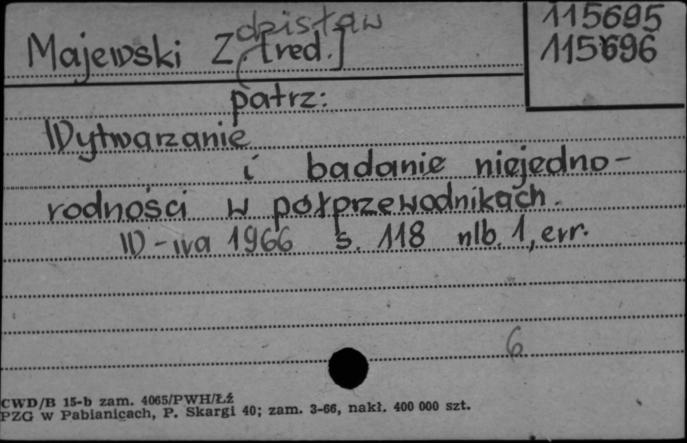 115695
Majewski Zdzisław [red.]
115696
patrz:
Wytwarzanie
i badanie niejedno-
rodności w półprzewodnikach.
W-wa 1966 s. 118 nlb. 1, err.
6
CWD/B 15-b zam. 4065/PWH/Łź
PZG w Pabianicach, P. Skargi 40; zam. 3-66, nakł. 400 000 szt.